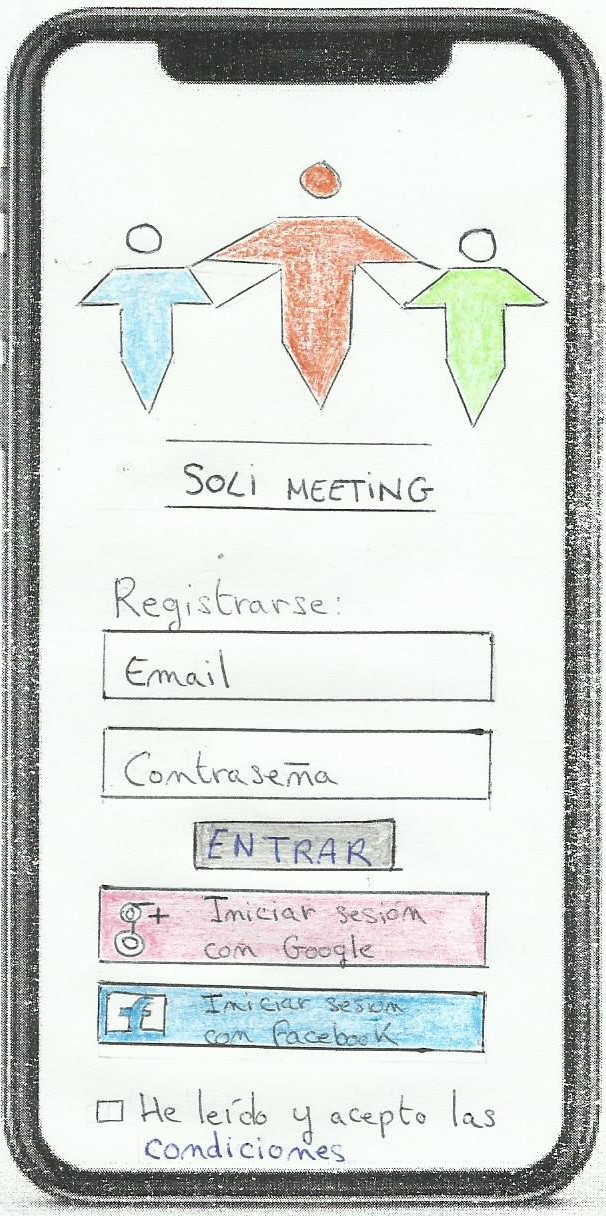 SOLI MEETING
Registrarse:
Email
Contraseña
ENTRAR
g+ Iniciar sesión
con Google
f Iniciar sesión
con facebook
He leído y acepto las
condiciones